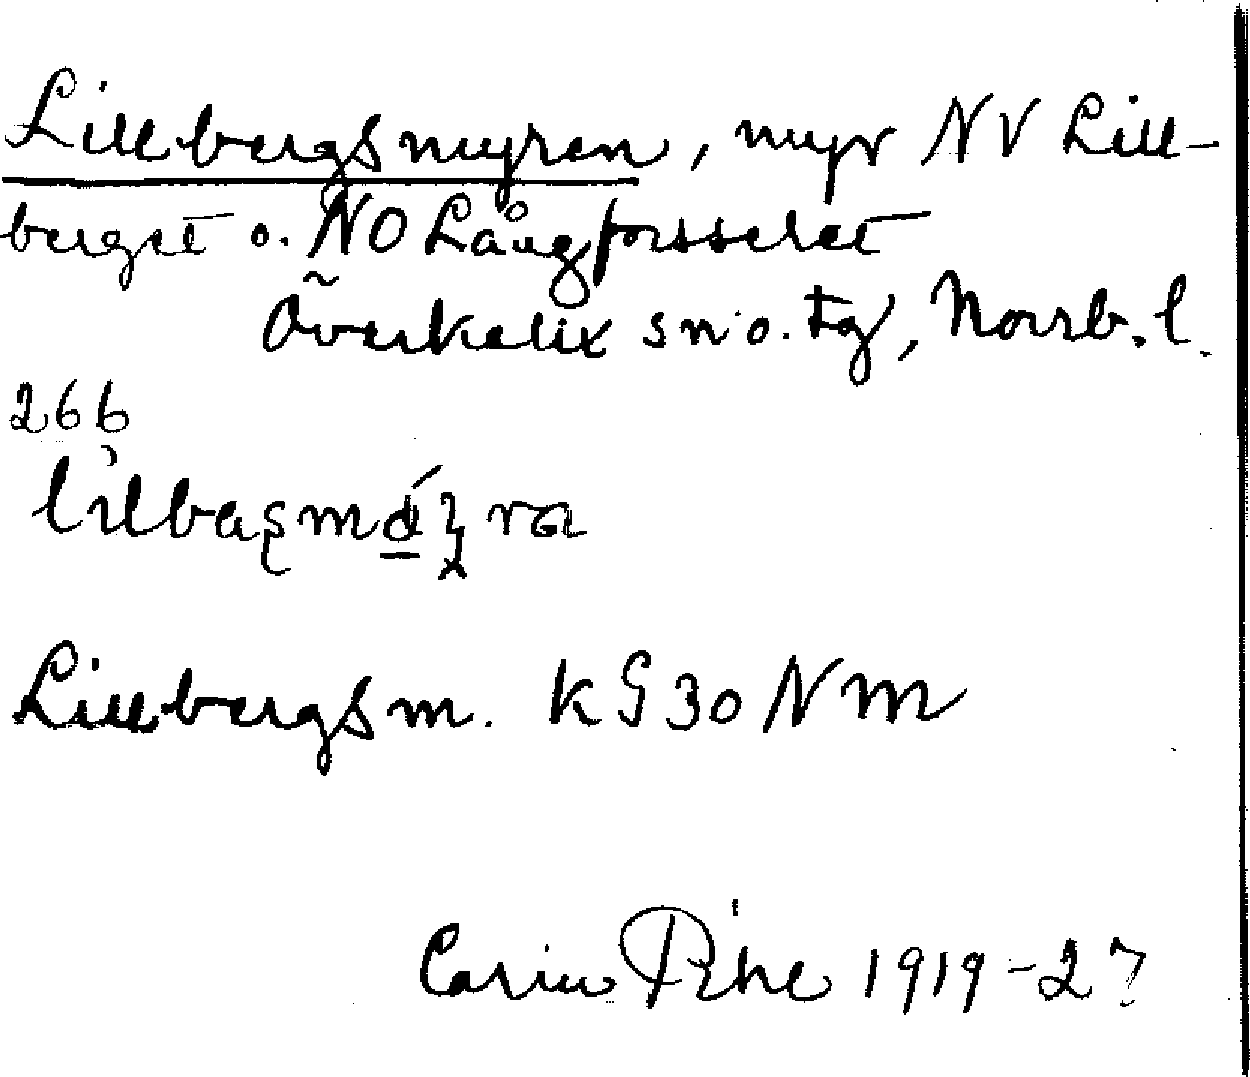 Lillbergsmyren, myr NV Lill-
berget o. NO Långforsselet
Överkalix sn o. tg, Norrb. l.
266
Lillbergsm. k G 30 N m
Carin Pihl 1919-27